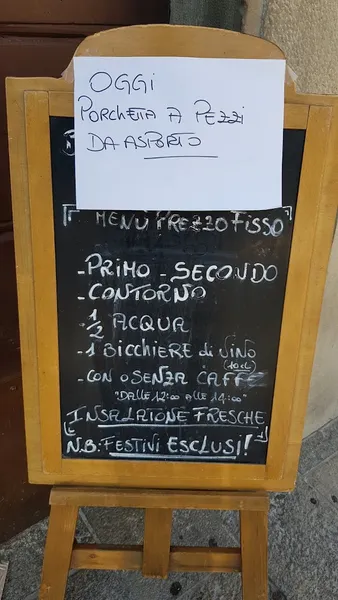 OGGI
PORCHETTA A PEZZI
DA ASPORTO
MENÙ PREZZO FISSO
- PRIMO - SECONDO
- CONTORNO
- 1/2 ACQUA
- 1 BICCHIERE di VINO
(10 CL)
- CON O SENZA CAFFÈ
"DALLE 12:00 ALLE 14:00"
INSALATONE FRESCHE
N.B. FESTIVI ESCLUSI!